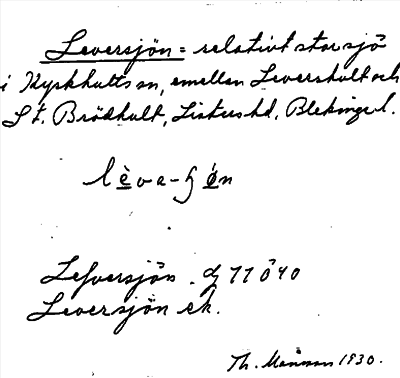 Leversjön = relativt stor sjö
i Kyrkhults sn, emellan Levershult och
St. Brödhult, Listers hd, Blekinge l.
lèva-ʃón
Lefversjön. GJ 11 Ö 40
Leversjön ek.
Th. Månsson 1930.